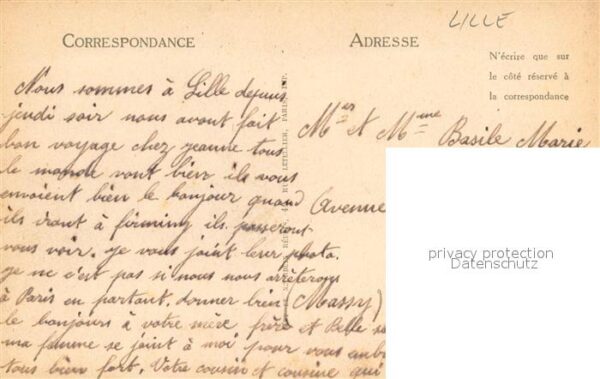 LILLE
CORRESPONDANCE
ADRESSE
N'écrire que sur
le côté réservé à
la correspondance
Nous sommes à Lille depuis
jeudi soir nous avont fait
bon voyage chez jeanne tous
le monde vont bien ils vous
envoient bien le bonjour quand
ils iront à firminy ils passeront
vous voir. je vous joint leur photo.
je ne c'est pas si nous nous arrêterons
à Paris en partant. donner bien
le bonjours à votre mère frère et Belle
ma femme se joint à moi pour vous
tous bien fort. Votre cousin et cousine qui
Mer et Mme Basile Marie
Avenue
Massy)
privacy protection
Datenschutz